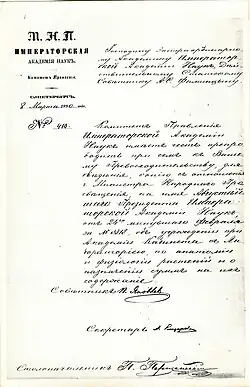 М. Н. П.
ИМПЕРАТОРСКАЯ
АКАДЕМІЯ НАУКЪ.
Комитетъ Правленія
САНКТПЕТЕРБУРГЪ.
8 Марта 1890 года
№ 410.
Господину Экстраординарно-
му Академику Император-
ской Академіи Наукъ, Дѣй-
ствительному Статскому
Совѣтнику А. С. Фаминцыну.
Комитетъ Правленія
Императорской Академіи
Наукъ имѣетъ честь препро-
водить при семъ къ Вашему
Превосходительству, для
свѣдѣнія, копію съ отношенія
г. Министра Народнаго Про-
свѣщенія на имя Августѣй-
шаго Президента Импера-
торской Академіи Наукъ,
отъ 24го минувшаго Февраля
за № объ учрежденіи при
Академіи Кабинета съ Ла-
бораторіею, по анатоміи
и физіологіи растеній и о
назначеніи суммъ на ихъ
содержаніе.
Совѣтникъ
Секретарь
Столоначальникъ